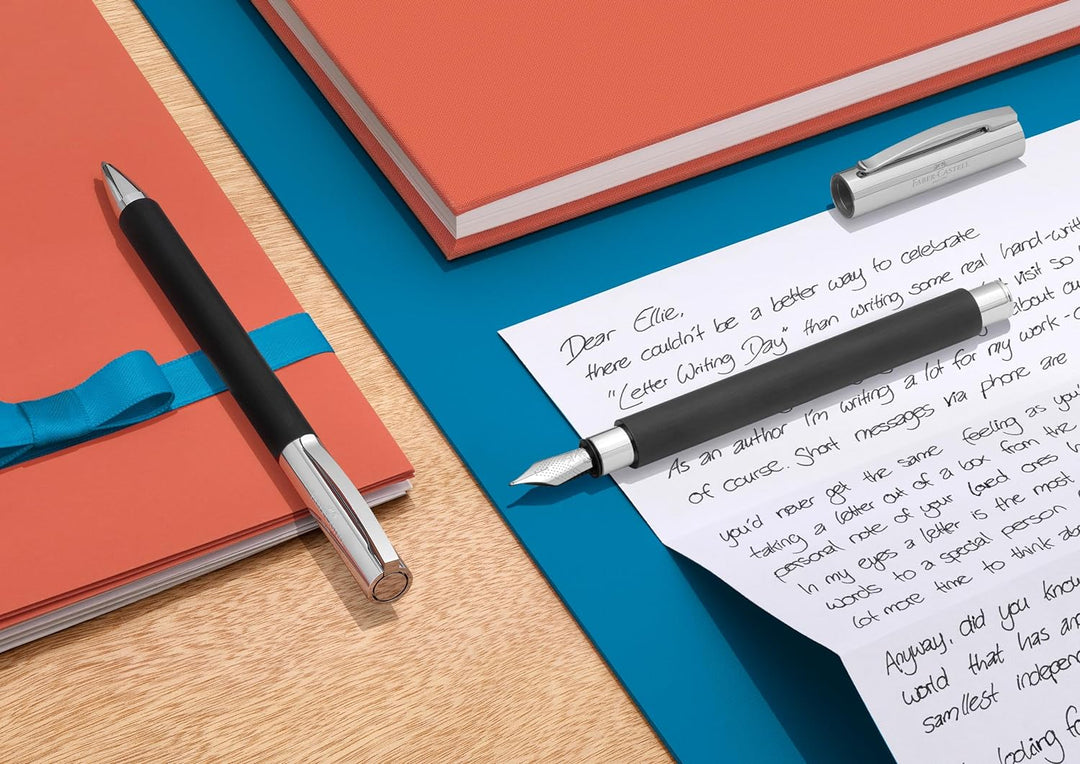 FABER-CASTELL
Dear Ellie,
there couldn't be a better way to celebrate
"Letter Writing Day" than writing some real hand-writt
visit so
about ou
As an author I'm writing a lot for my work-o
of course. Short messages via phone are
you'd never get the same feeling as you
taking a letter out of a box from the
personal note of your loved ones
In my eyes a letter is the most
words to a special person
lot more time to think abo
Anyway, did you know
world that has an
samllest indepen
looking fo